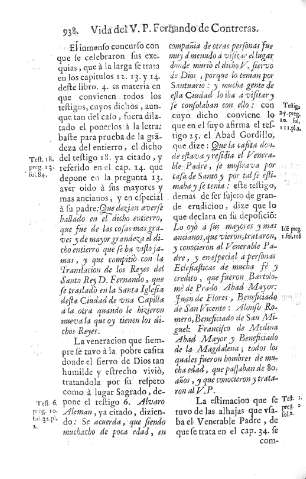 938. Vida del V. P. Fernando de Contreras.
El inmenso concurso con
que se celebraron sus exe-
quias, que à la larga se trata
en los capitulos 12. 13. y 14.
deste libro. 4. es materia en
que convienen todos los
testigos, cuyos dichos, aun-
que tan del caso, fuera dila-
tado el ponerlos à la letra:
baste para prueba de la gran-
deza del entierro, el dicho
del testigo 18. ya citado, y
referido en el cap. 24. que
depone en la pregunta 13.
aver oido à sus mayores y
mas ancianos, y en especial
à su padre. Que dezian averse
hallado en el dicho entierro,
que fue de las cosas mas gra-
ves y de mayor grandeza el di-
cho entierro que se ha visto ja-
mas, y que compitió con la
Translacion de los Reyes del
Santo Rey D. Fernando, que
se traslado en la Santa Iglesia
desta Ciudad de una Capilla
a la otra quando le hizieron
nueva la que oy tienen los di-
chos Reyes.
La veneracion que siem-
pre se tuvo à la pobre casita
donde el siervo de Dios tan
humilde y estrecho vivió,
tratandola por su respeto
como à lugar Sagrado, de-
pone el testigo 6. Alvaro
Aleman, ya citado, dizien-
do: Se acuerda, que siendo
muchacho de poca edad, en
Test. 18.
preg. 13.
Test. 6.
preg. 10.
compañia de otras personas fue
muy à menudo à visitar el lugar
donde murió el dicho V. siervo
de Dios, porque lo teman por
Santuario: y mucha gente de
esta Ciudad lo iba à visitar y
se consolaban con ello: con
cuyo dicho contexta lo
que en el suyo afirma el tes-
tigo 25. el Abad Gordillo,
que dize: Que la casita don-
de estava y residia el Venera-
ble Padre, se mostrava por
casa de Santo y por tal se esti-
mava y se tenia: este testigo,
demàs de ser sujeto de gran-
de erudicion, dize que lo
declara en su deposicion:
Lo oyò a sus mayores y mas
ancianos, que vieron, trataron,
y conocieron al Venerable Pa-
dre, y en especial a personas
Eclesiasticas de mucha fé y
credito, que fueron Bartolo-
mé de Prado Abad Mayor:
Juan de Flores, Beneficiado
de San Vicente: Alonso Ro-
mero, Beneficiado de San Mi-
guel: Francisco de Medina
Abad Mayor y Beneficiado
de la Magdalena, todos los
quales fueron hombres de mu-
cha edad, que passaban de 80.
años, y que conocieron y trata-
ron al V. P.
La estimacion que se
tuvo de las alhajas que vsa-
ba el Venerable Padre, de
que se trata en el cap. 34. se
com-